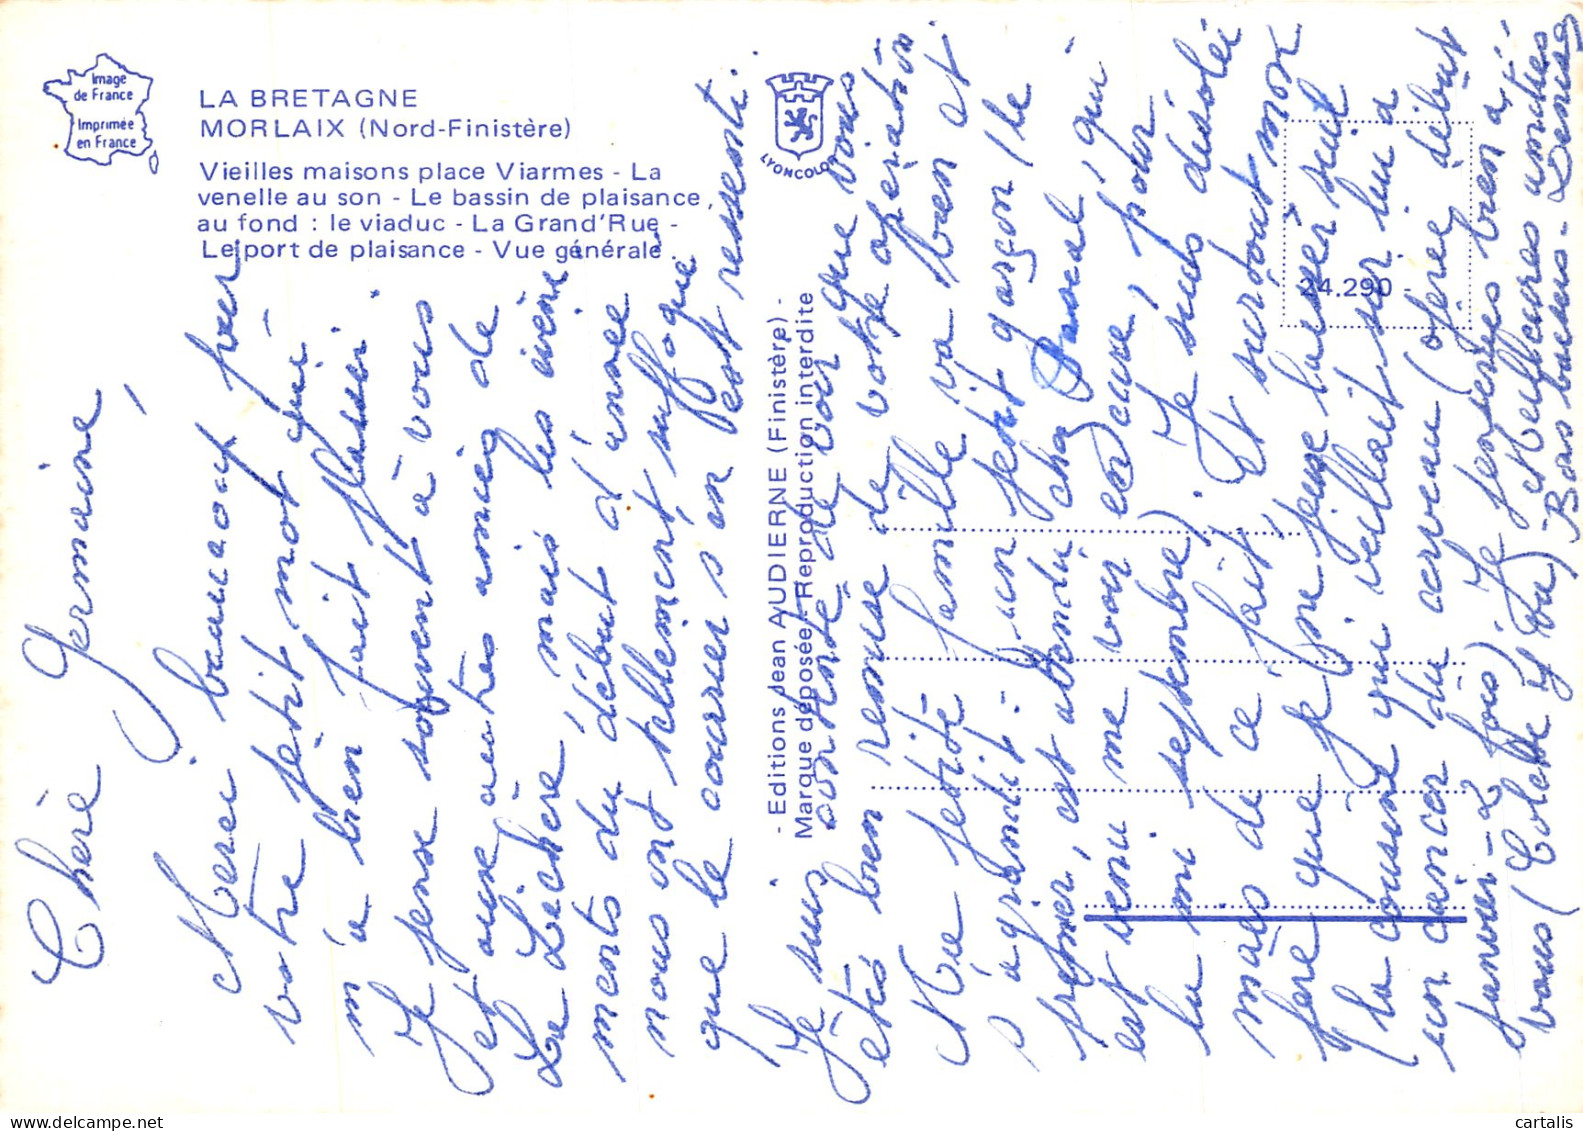 Image
de France
Imprimée
en France
LA BRETAGNE
MORLAIX (Nord-Finistère)
Vieilles maisons place Viarmes - La
venelle au son - Le bassin de plaisance,
au fond : le viaduc - La Grand'Rue -
Le port de plaisance - Vue générale.
LYONCOLOR
- Editions Jean AUDIERNE (Finistère) -
Marque déposée - Reproduction interdite
24.290 -
Chère Germaine,
Merci beaucoup pour
votre petit mot qui
m'a bien fait plaisir.
Je pense souvent à vous
et aux autres amies de
La Léchère, mais les évène
ments du début d'année
nous ont tellement suffoqué
que le courrier s'en est ressenti.
Je suis contente de voir que vous
êtes bien remise de votre opération.
Ma petite famille va bien et
s'agrandit : un petit garçon (le
premier, est attendu chez Pascal, qui
est venu me voir en cure, pour
la mi septembre). Je suis désolée
mais de ce fait, et surtout mon
père que je ne peux laisser seul
(la cousine qui veillait sur lui a
un cancer du cerveau (opérée début
janvier - 2 fois). Je penserais bien à
vous (Colette y va) - Meilleures amitiés
Bons baisers - Denise
cartalis